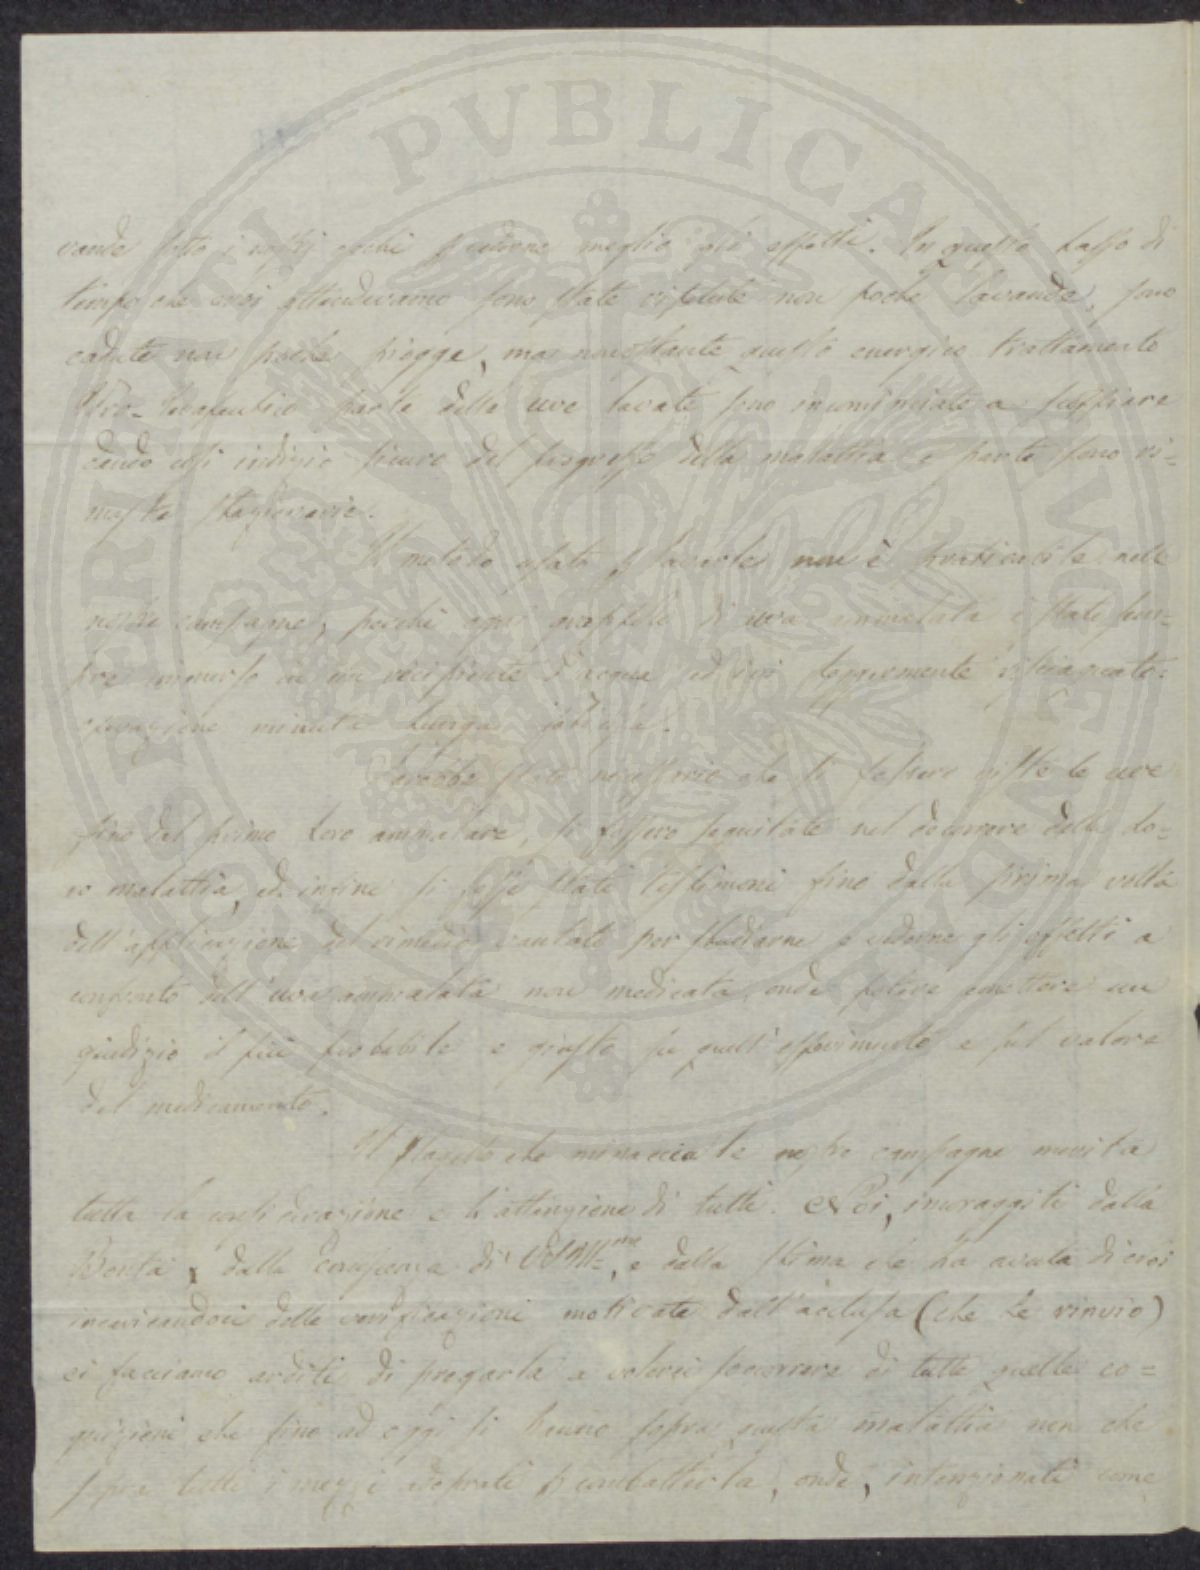 vande sotto i nostri occhi p vederne meglio gli effetti. In questo lasso di
tempo che noi attendevamo sono state ripetute non poche lavande, sono
cadute non poche piogge, ma nonostante questo energico trattamento
Idro-terapeutico parte delle uve lavate sono incominciate a scoppiare
dando così indizio sicuro del progresso della malattia e parte sono ri=
maste stazionarie.
Il metodo usato p lavarle non è praticabile nelle
nostre campagne, perchè ogni grappolo di uva ammalata è stato sem=
pre immerso in un recipiente d'acqua ed ivi leggermente
operazione minuta lunga
Sarebbe stato necessario che si fossero viste le uve
fino dal primo loro ammalare, si fossero seguitate nel decorrere della lo=
ro malattia, ed infine si fosse stati testimoni fino dalla prima volta
dell'applicazione del rimedio vantato per studiarne e vederne gli effetti a
confronto dell'uva ammalata non medicata, onde potere emettere un
giudizio il più probabile e giusto su quell'esperimento e sul valore
del medicamento.
Il flagello che minaccia le nostre campagne merita
tutta la considerazione e l'attenzione di tutti. Noi, incoraggiti dalla
Bontà, dalla di e dalla stima che ha avuta di noi
incaricandoci delle verificazioni motivate dall'acclusa (che Le rinvio)
ci facciamo arditi di pregarla a volerci soccorrere di tutte quelle co=
gnizioni che fino ad oggi si hanno sopra questa malattia non che
sopra tutti i mezzi adoprati p combatterla, onde, intenzionati come